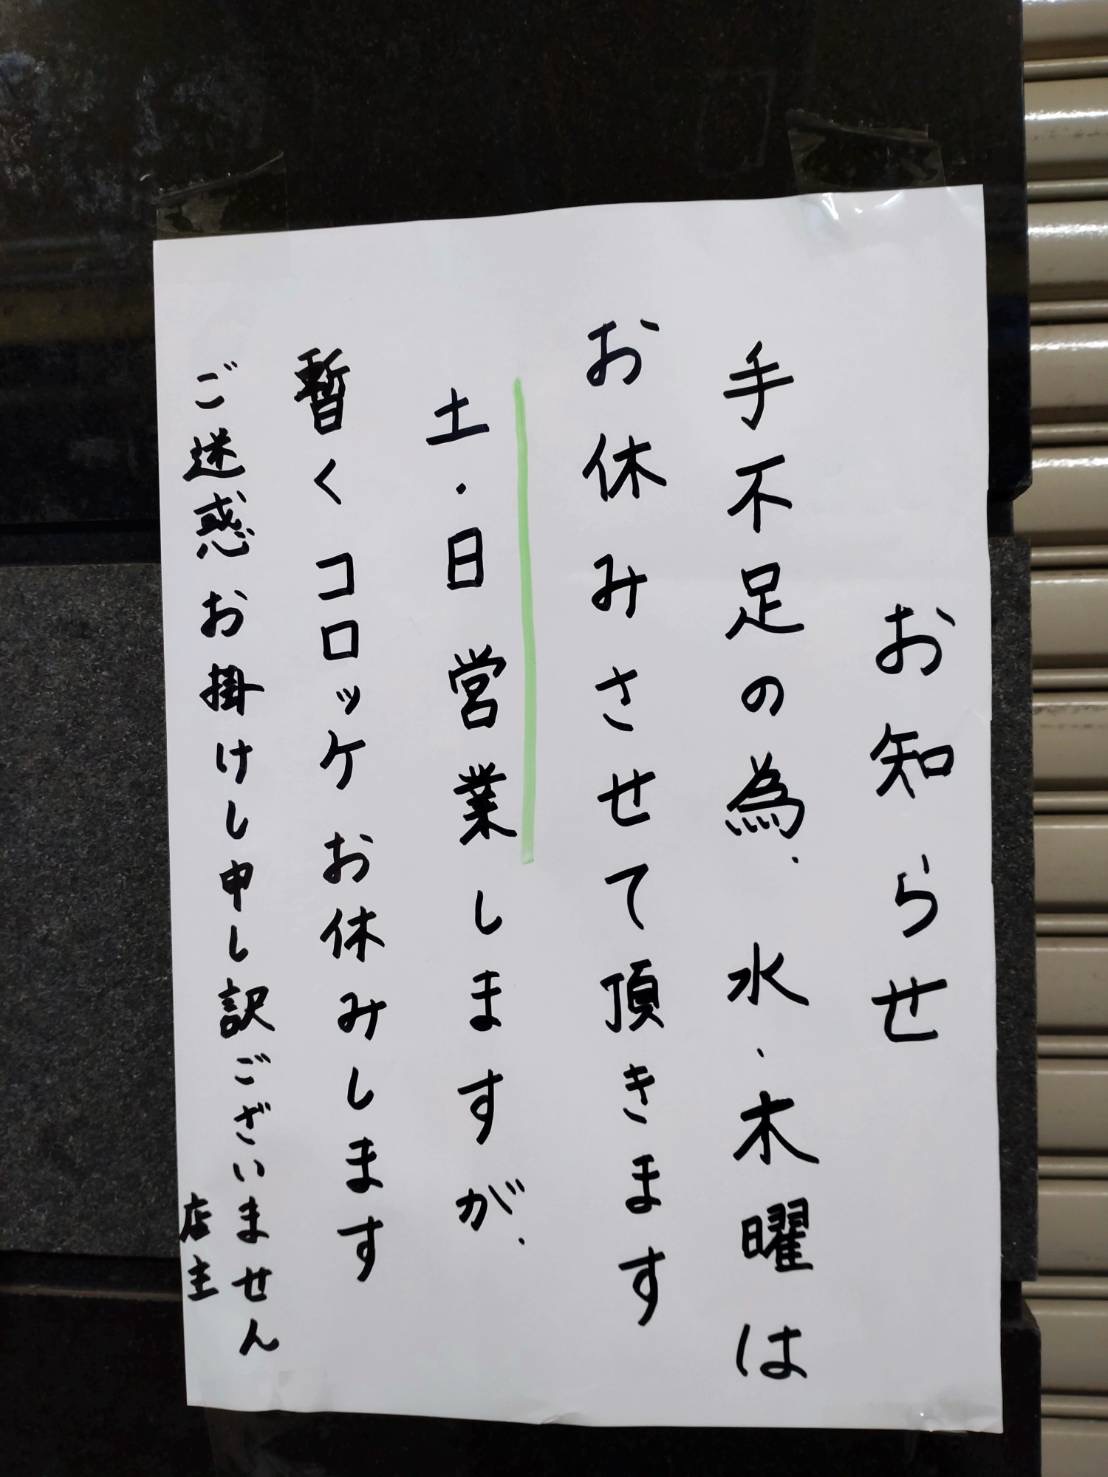 お知らせ
手不足の為、水・木曜は
お休みさせて頂きます
土・日営業しますが、
暫くコロッケお休みします
ご迷惑お掛けし申し訳ございません
店主